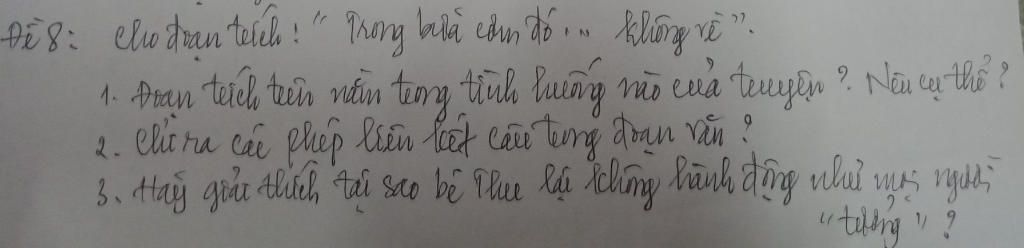 Đề 8: Cho đoạn trích: " Trong bữa cơm đó ... không về".
1. Đoạn trích trên nằm trong tình huống nào của truyện? Nêu cụ thể?
2. Chỉ ra các phép liên kết câu trong đoạn văn?
3. Hãy giải thích tại sao bé Thu lại không hành động như mọi người
"tưởng"?